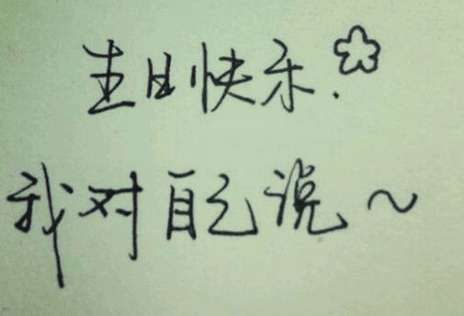 生日快乐.
我对自己说～